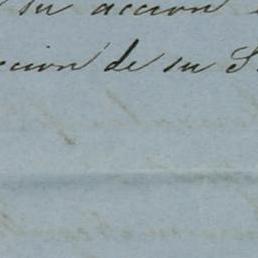 su accion
ccion de su S